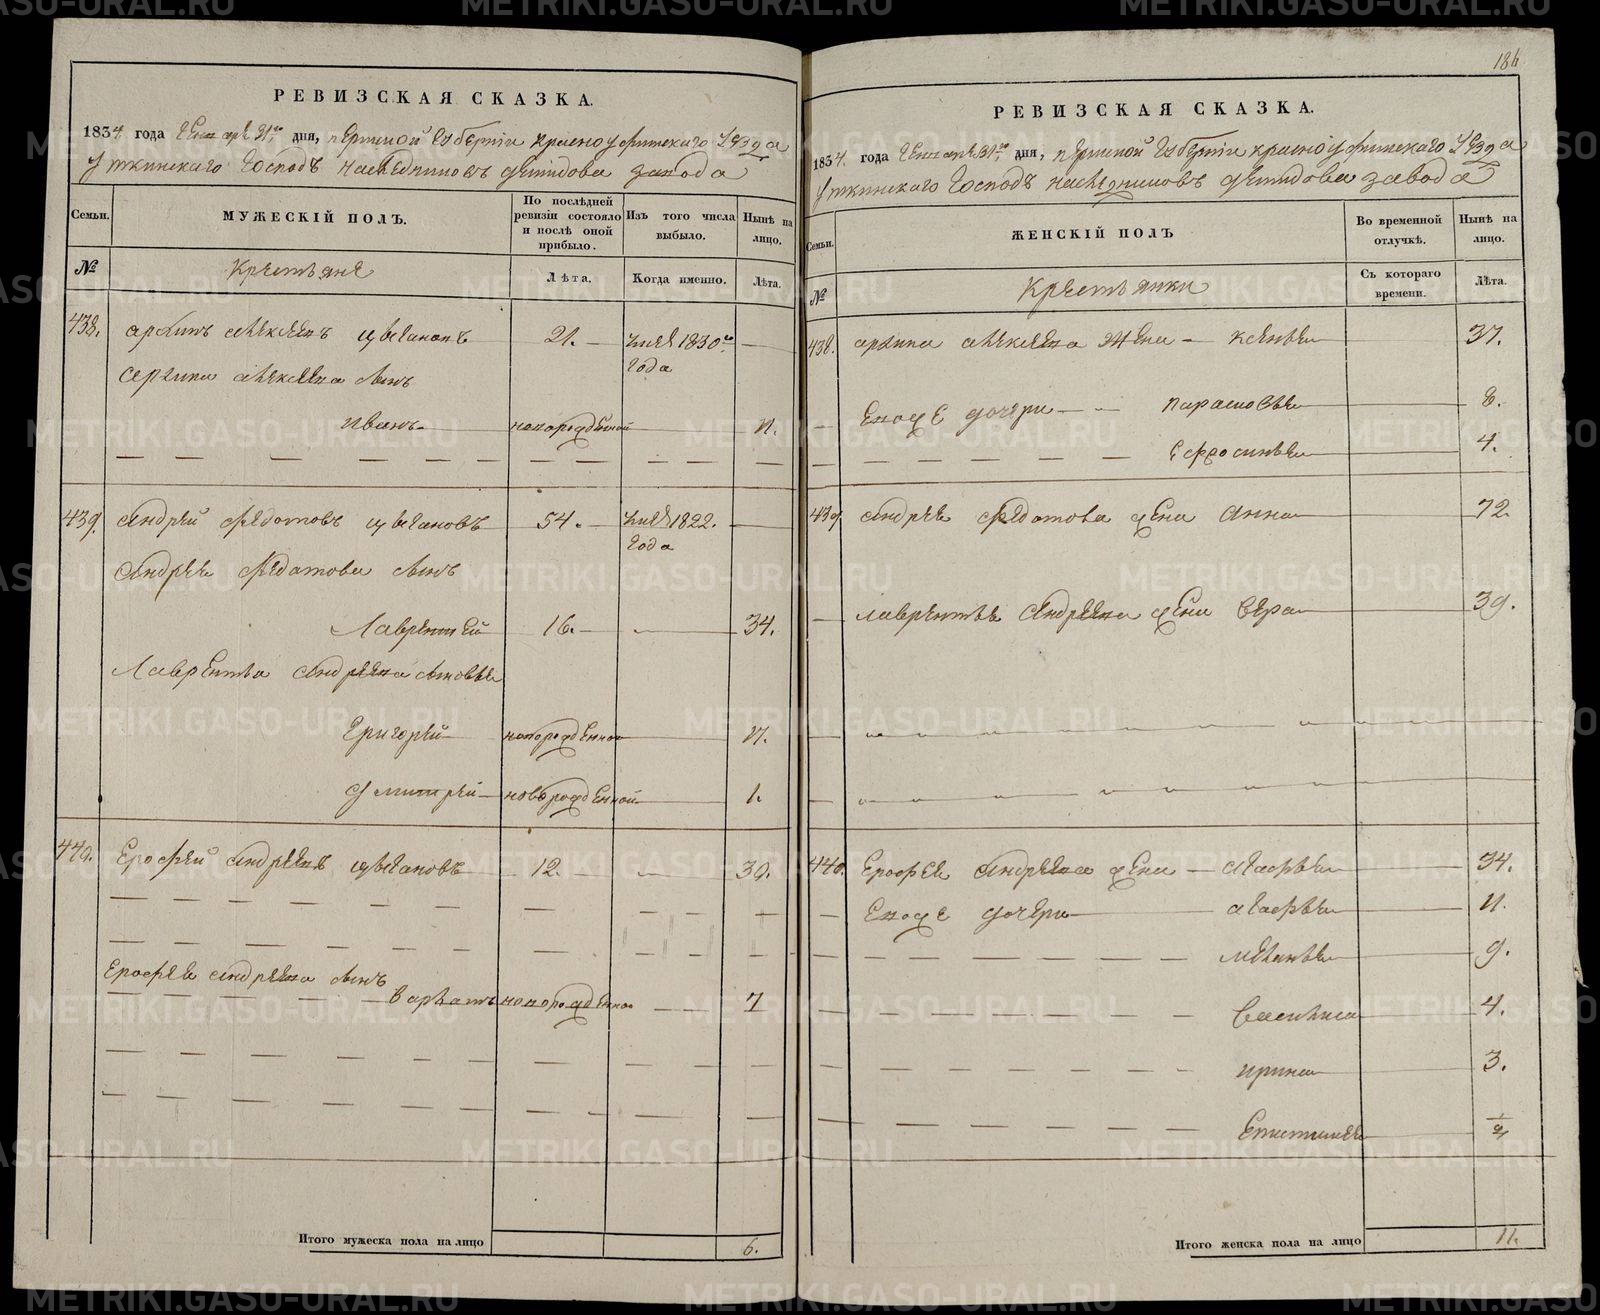 РЕВИЗСКАЯ СКАЗКА.
1834. года Генваря 31го дня, Пермской Губерніи Красноуфимскаго Уѣзда
Уткинскаго Господъ Наслѣдниковъ Демидова завода
Семьи.
МУЖЕСКІЙ ПОЛЪ.
По послѣдней ревизіи состояло и послѣ оной прибыло.
Изъ того числа выбыло.
Нынѣ на лицо.
№
Крестьяне
Лѣта.
Когда именно.
Лѣта.
438. Архипъ Алексѣевъ 21. 1830го
года
Архипа Алексѣева сынъ
Иванъ новорожденной 11.
439. Андрей Федотовъ 54. 1822.
года
Андрея Федотова сынъ
Лаврентей 16. 34.
Лаврентья Андреева сыновья
Григорей новорожденной 11.
Дмитрей новорожденной 1.
440. Ерофей Андреевъ 12. 30.
Ерофея Андреева сынъ
Варламъ новорожденной 7
Итого мужеска пола на лицо 6.
186
РЕВИЗСКАЯ СКАЗКА.
1834. года Генваря 31го дня, Пермской Губерніи Красноуфимскаго Уѣзда
Уткинскаго Господъ Наслѣдниковъ Демидова завода
Семьи.
ЖЕНСКІЙ ПОЛЪ
Во временной отлучкѣ.
Нынѣ на лицо.
№
Крестьянки
Съ котораго времени.
Лѣта.
438. Архипа Алексѣева жена Ксенья 37.
Евоже дочери Парасковья 8.
Ефросинья 4.
439 Андрея Федотова жена Анна 72.
Лаврентья Андреева жена Вера 39.
440. Ерофея Андреева жена Агафья 34.
Евоже дочери Агафья 11.
Меланья 9.
Василиса 4.
Ирина 3.
Епистимея ½
Итого женска пола на лицо 11.
METRIKI.GASO-URAL.RU